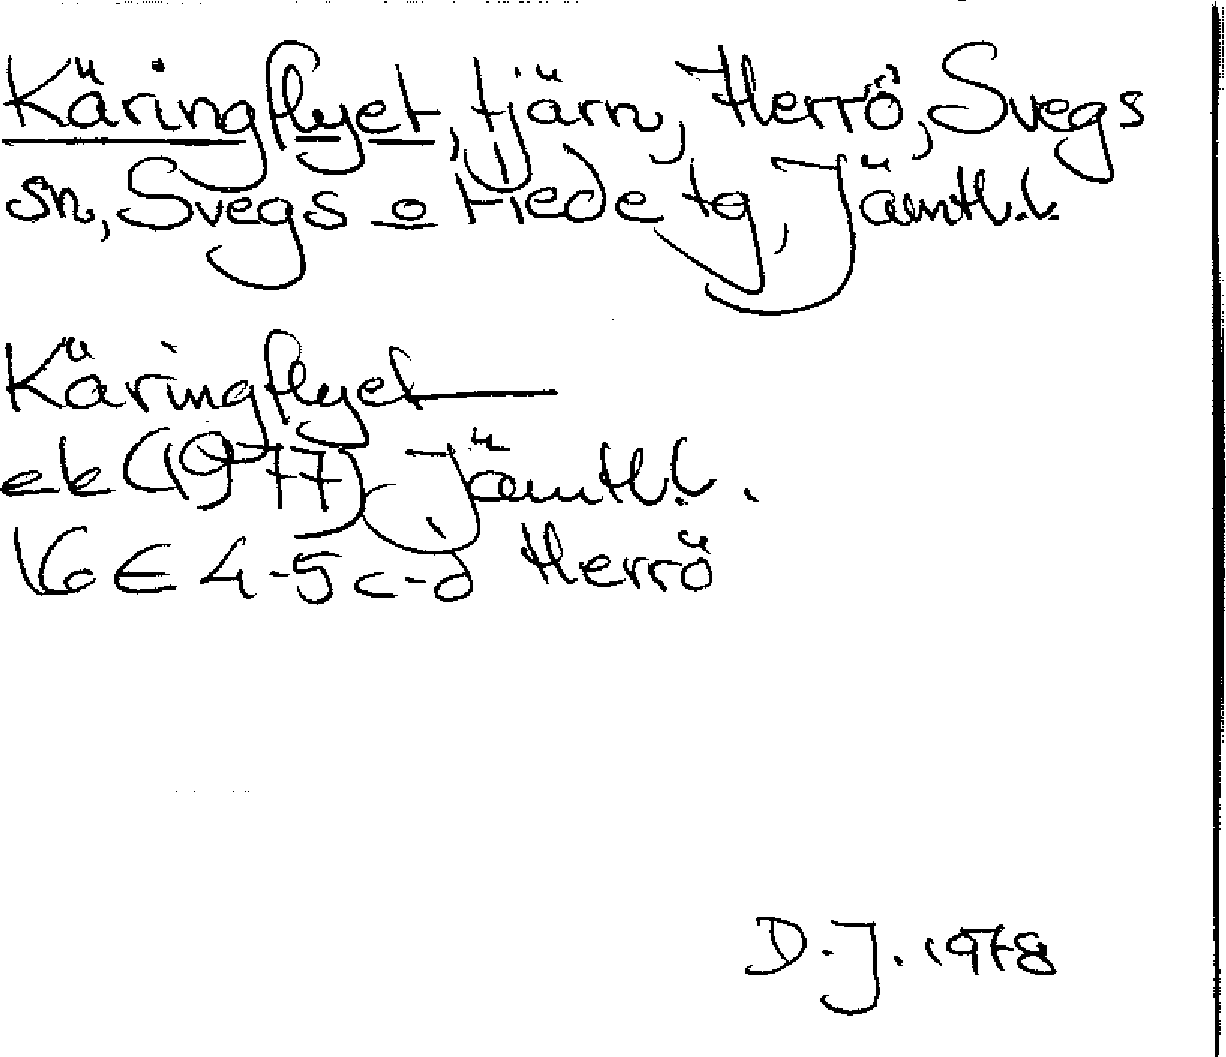 Käringflyet, tjärn, Herrö, Svegs
sn, Svegs o Hede tg, Jämtl.l.
Käringflyet—
ek (1977) Jämtl.l.
16 E 4-5 c-d Herrö
D.J. 1978